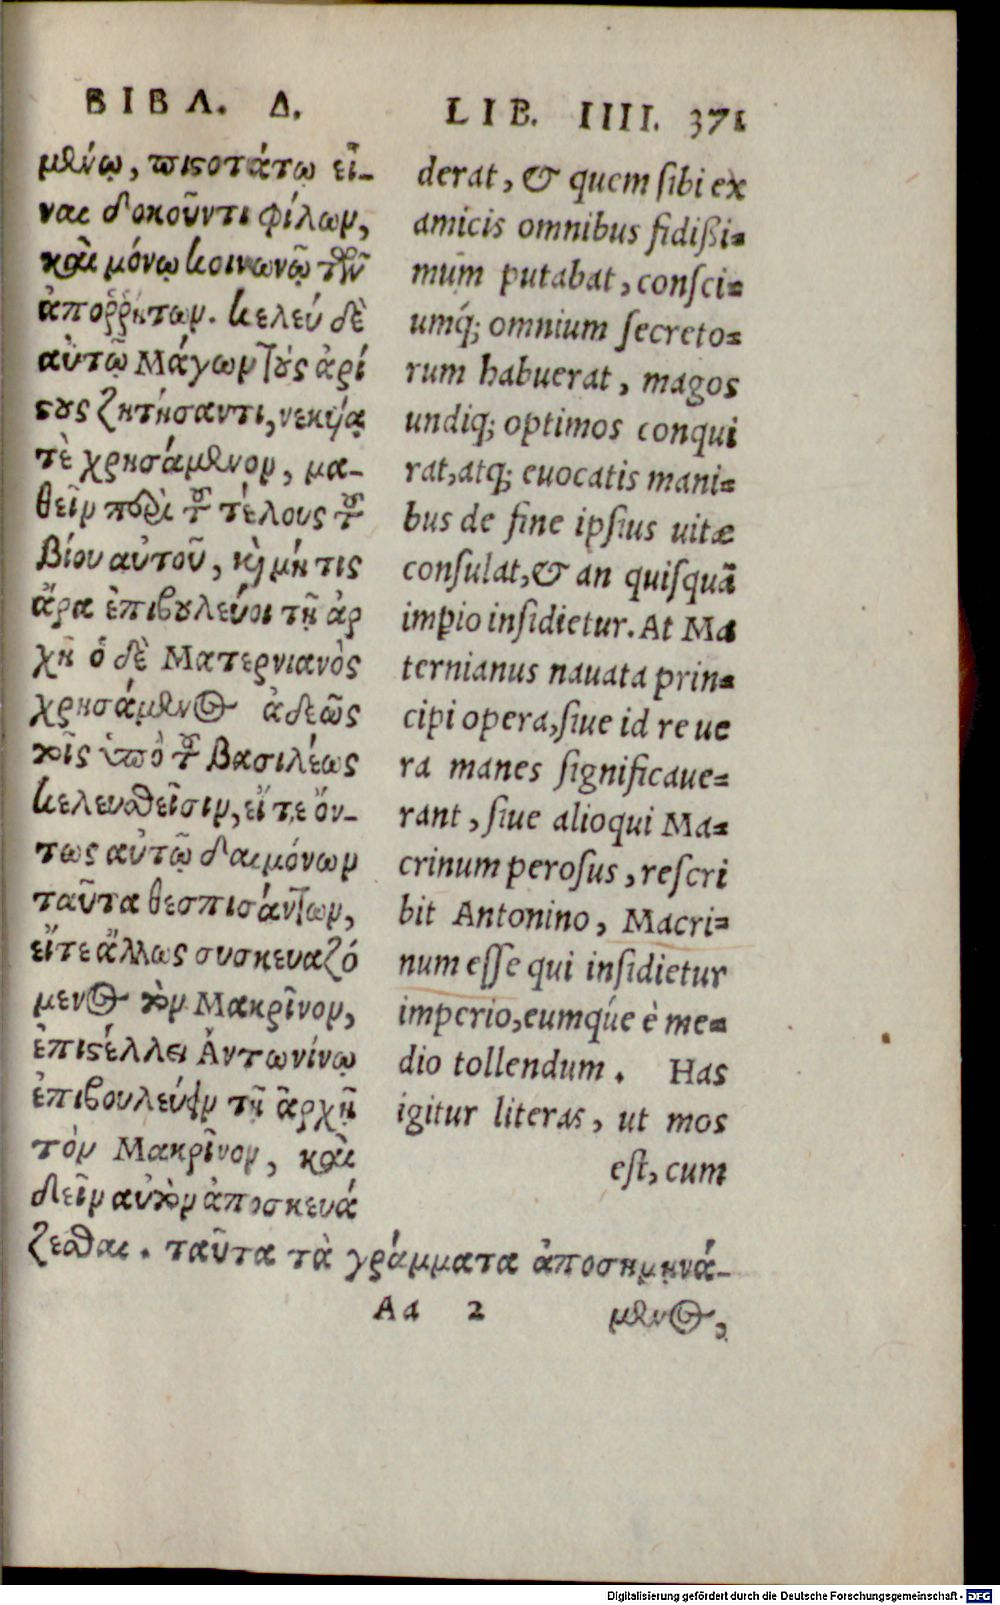 ΒΙΒΛ. Δ.
μένῳ, πιστοτάτῳ εἶ-
ναι δοκοῦντι φίλων,
καὶ μόνῳ κοινωνῷ τῶν
ἀποῤῥήτων. κελεύει δὲ
αὐτῷ Μάγων τοὺς ἀρί
στους ζητήσαντι, νεκυίᾳ
τὲ χρησάμενον, μα-
θεῖν περὶ τοῦ τέλους τοῦ
βίου αὐτοῦ, καὶ μή τις
ἄρα ἐπιβουλεύοι τῇ ἀρ
χῇ ὁ δὲ Ματερνιανὸς
χρησάμενος ἀδεῶς
τοῖς ὑπὸ τοῦ βασιλέως
κελευσθεῖσιν, εἴτε ὄν-
τως αὐτῷ δαιμόνων
ταῦτα θεσπισάντων,
εἴτε ἄλλως συσκευαζό
μενος τὸν Μακρῖνον,
ἐπιστέλλει Ἀντωνίνῳ
ἐπιβουλεύειν τῇ ἀρχῇ
τὸν Μακρῖνον, καὶ
δεῖν αὐτὸν ἀποσκευά
ζεσθαι. ταῦτα τὰ γράμματα ἀποσημηνά-
μενος,
LIB. IIII. 371
derat, & quem ſibi ex
amicis omnibus fidißi-
mum putabat, conſci-
umq́; omnium ſecreto-
rum habuerat, magos
undiq; optimos conqui
rat, atq; euocatis mani-
bus de fine ipſius uitæ
conſulat, & an quiſquã
impio inſidietur. At Ma
ternianus nauata prin-
cipi opera, ſiue id re ue
ra manes ſignificaue-
rant, ſiue alioqui Ma-
crinum peroſus, reſcri
bit Antonino, Macri-
num eſſe qui inſidietur
imperio, eumq́ue è me-
dio tollendum. Has
igitur literas, ut mos
eſt, cum
Aa 2
Digitalisierung gefördert durch die Deutsche Forschungsgemeinschaft - DFG